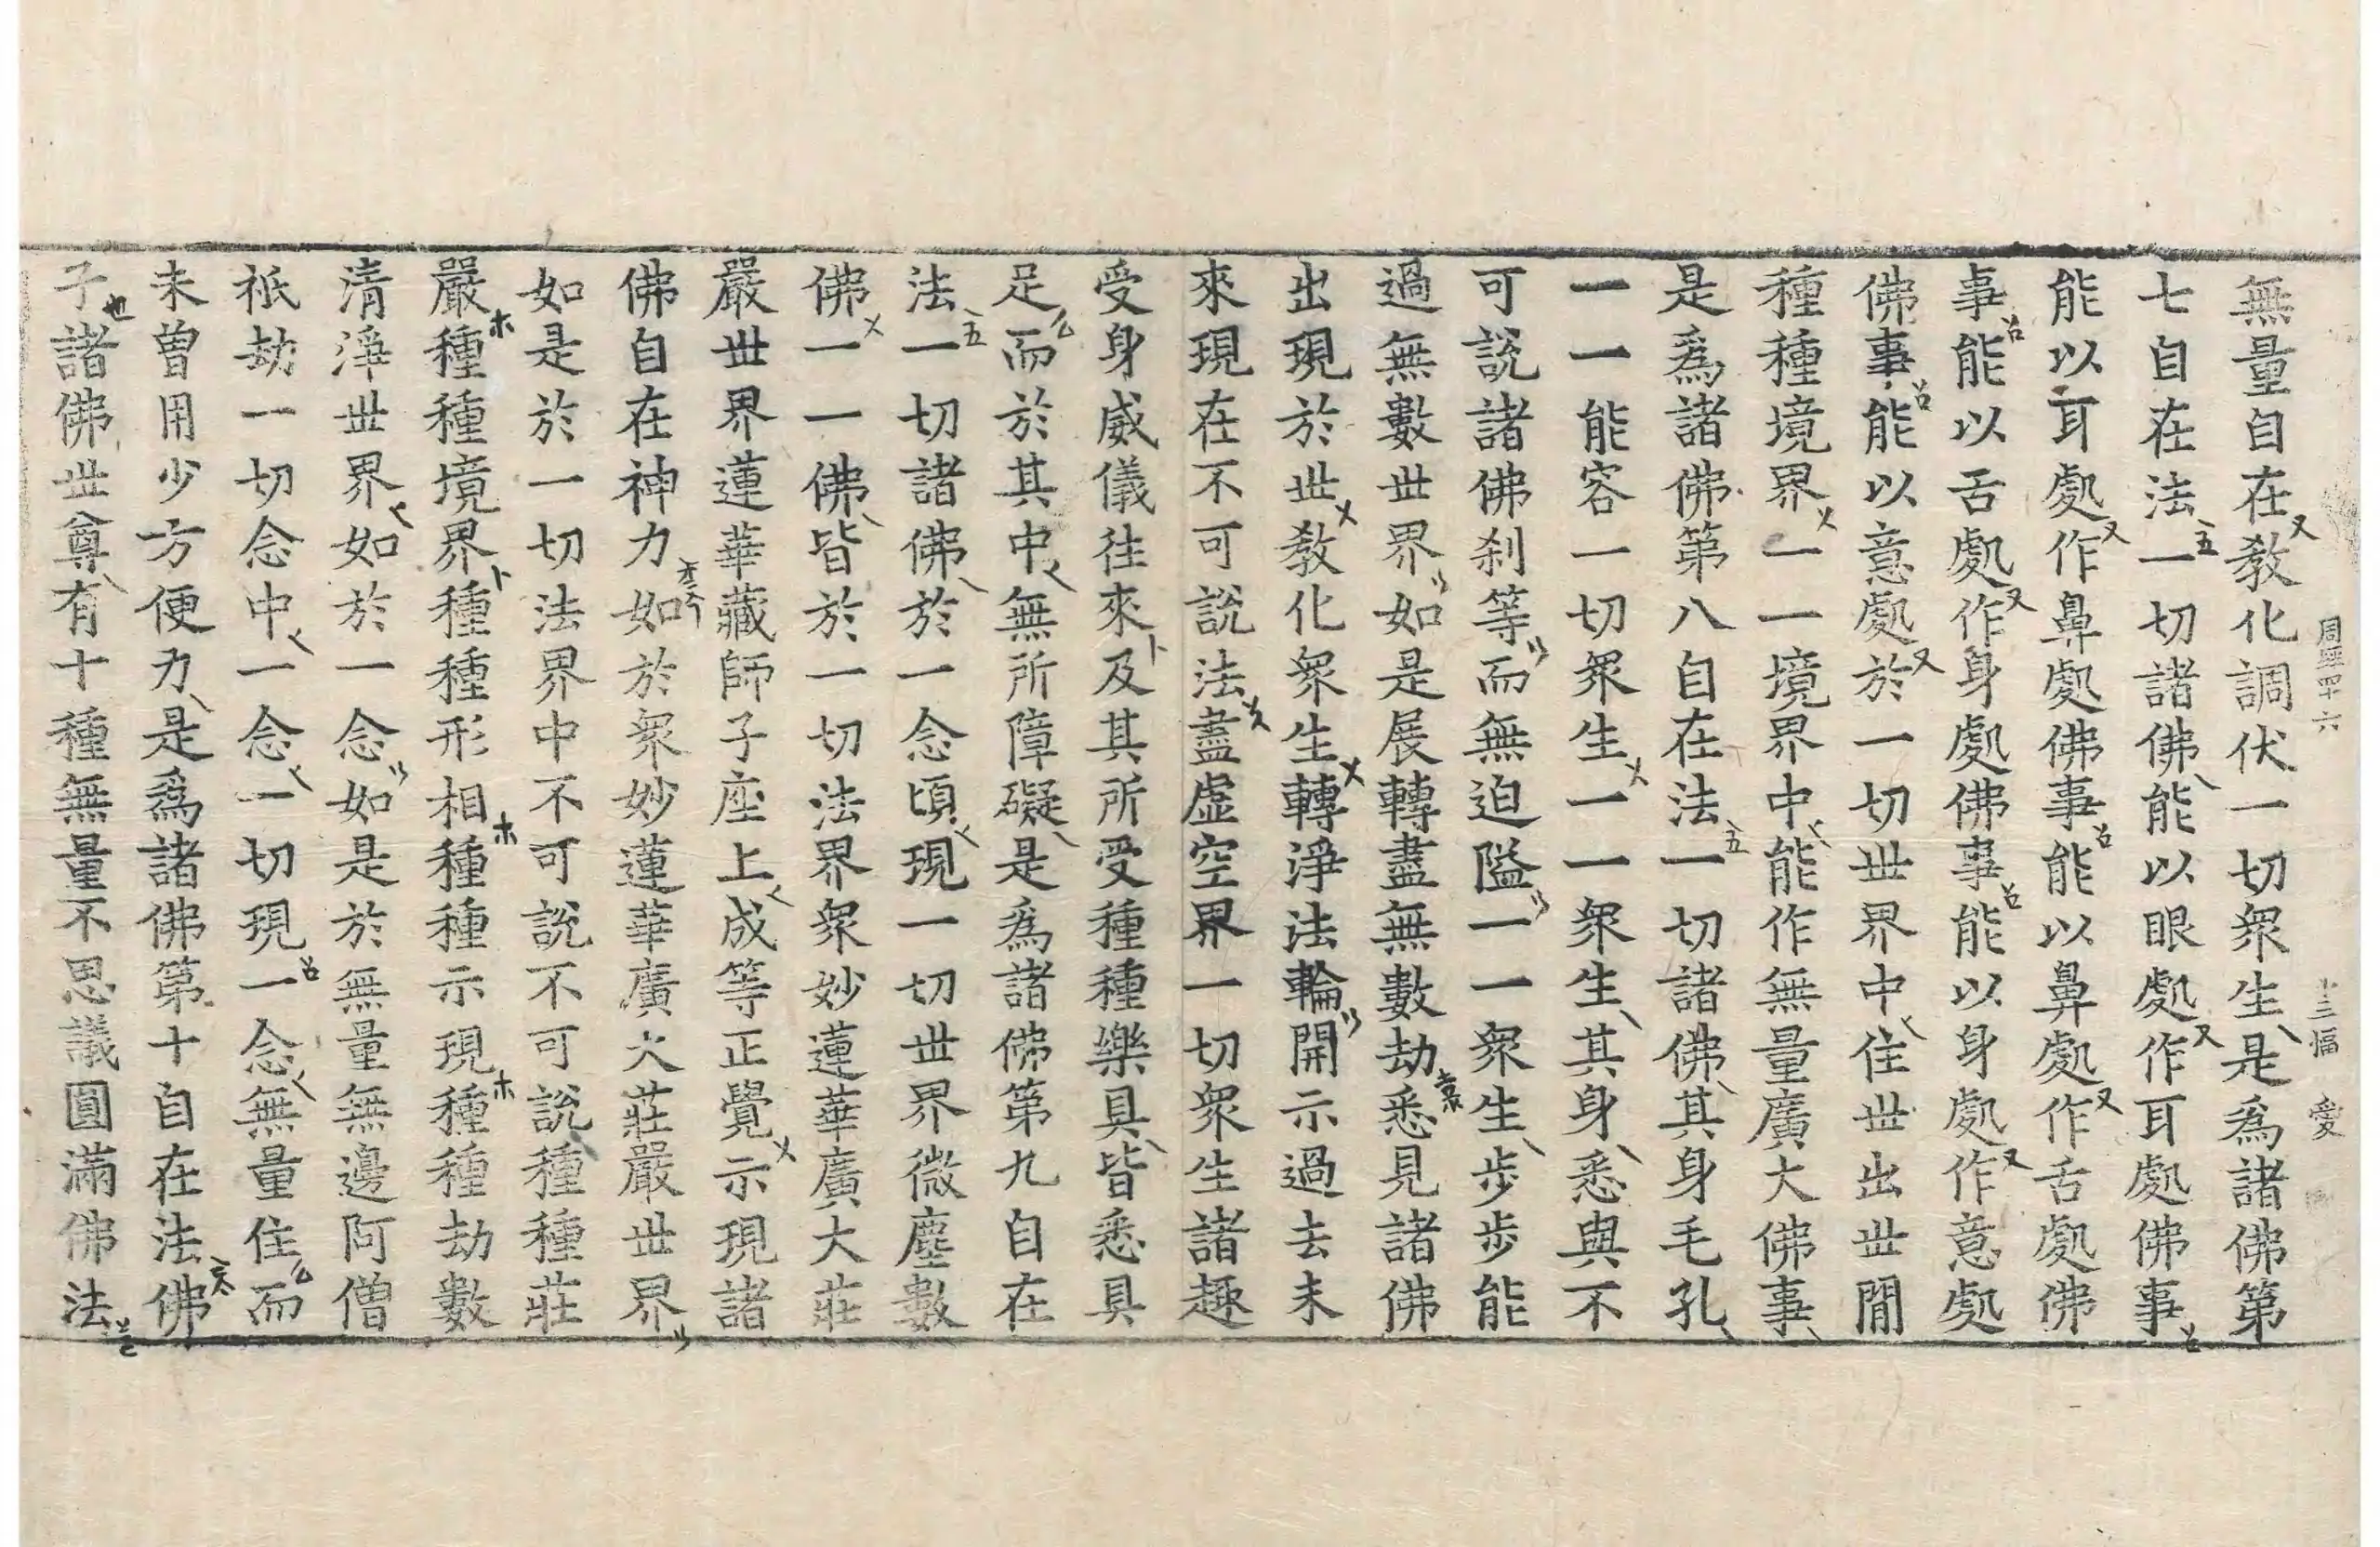 周經四十六 十三幅 愛
無量自在教化調伏一切衆生是為諸佛第
七自在法一切諸佛能以眼處作耳處佛事
能以耳處作鼻處佛事能以鼻處作舌處佛
事能以舌處作身處佛事能以身處作意處
佛事能以意處於一切世界中住世出世間
種種境界一一境界中能作無量廣大佛事
是為諸佛第八自在法一切諸佛其身毛孔
一一能容一切衆生一一衆生其身悉與不
可說諸佛刹等而無迫隘一一衆生步步能
過無數世界如是展轉盡無數劫悉見諸佛
出現於世教化衆生轉淨法輪開示過去未
來現在不可說法盡虛空界一切衆生諸趣
受身威儀往來及其所受種種樂具皆悉具
足而於其中無所障礙是為諸佛第九自在
法一切諸佛於一念頃現一切世界微塵數
佛一一佛皆於一切法界衆妙蓮華廣大莊
嚴世界蓮華藏師子座上成等正覺示現諸
佛自在神力如於衆妙蓮華廣大莊嚴世界
如是於一切法界中不可說不可說種種莊
嚴種種境界種種形相種種示現種種劫數
清淨世界如於一念如是於無量無邊阿僧
祇劫一切念中一念一切現一念無量住而
未曾用少方便力是為諸佛第十自在法佛
子諸佛世尊有十種無量不思議圓滿佛法